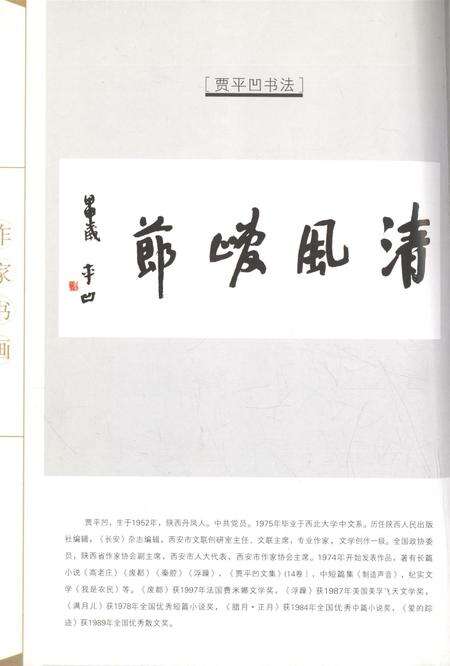 [贾平凹书法]
清风峻节
甲申岁
平凹
作家书画
贾平凹，生于1952年，陕西丹凤人。中共党员。1975年毕业于西北大学中文系。历任陕西人民出版
社编辑，《长安》杂志编辑，西安市文联创研室主任、文联主席，专业作家，文学创作一级。全国政协委
员，陕西省作家协会副主席，西安市人大代表，西安市作家协会主席。1974年开始发表作品。著有长篇
小说《高老庄》《废都》《秦腔》《浮躁》，《贾平凹文集》(14卷)，中短篇集《制造声音》，纪实文
学《我是农民》等。《废都》获1997年法国费米娜文学奖，《浮躁》获1987年美国美孚飞天文学奖，
《满月儿》获1978年全国优秀短篇小说奖，《腊月·正月》获1984年全国优秀中篇小说奖，《爱的踪
迹》获1989年全国优秀散文奖。